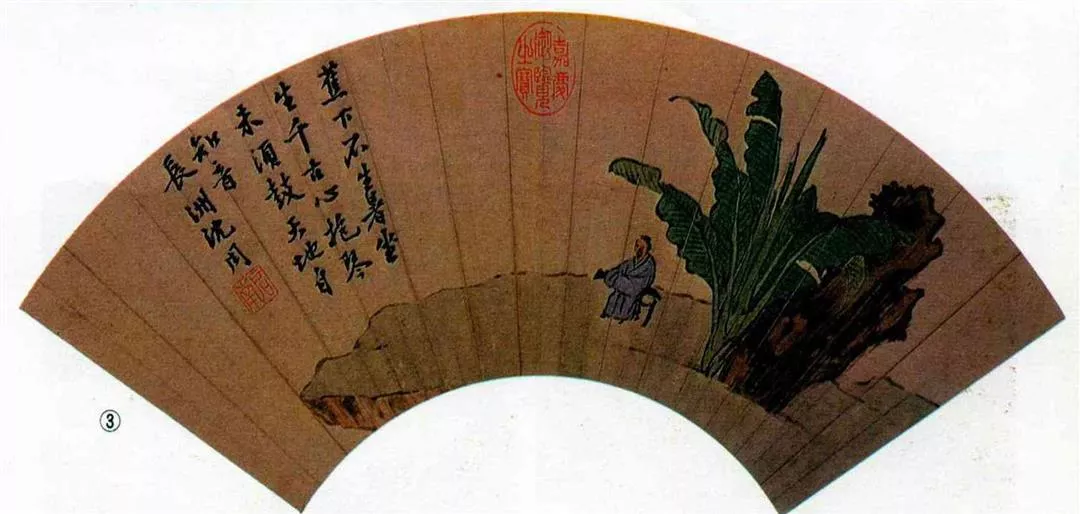 嘉慶
御覽
之寶
蕉下不生暑坐
生千古心抱琴
未須鼓天地自
知音
長洲沈周
啟南
③